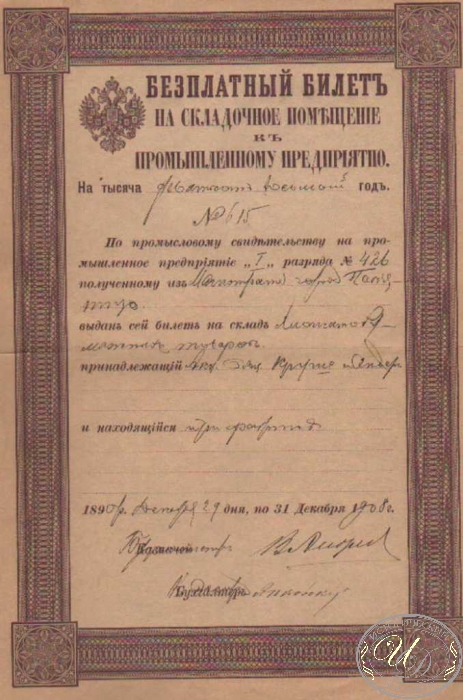 БЕЗПЛАТНЫЙ БИЛЕТЪ
НА СКЛАДОЧНОЕ ПОМѢЩЕНІЕ
КЪ
ПРОМЫШЛЕННОМУ ПРЕДПРІЯТІЮ.
На тысяча девятьсот восьмой годъ.
№ 615
По промысловому свидѣтельству на про-
мышленное предпріятіе „I“ разряда № 426
полученному изъ Магистрата город
выданъ сей билетъ на складъ
товаров
принадлежащій Акц. Общ. Круше и Эндер
и находящійся при фабрикѣ
1890 Декабря 29 дня, по 31 Декабря 1908 г.
Казначей
Бухгалтеръ